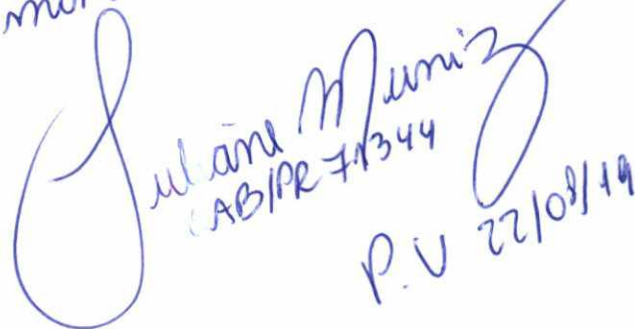 Juliane Muniz
OAB/PR 71344
P.V 22/08/19